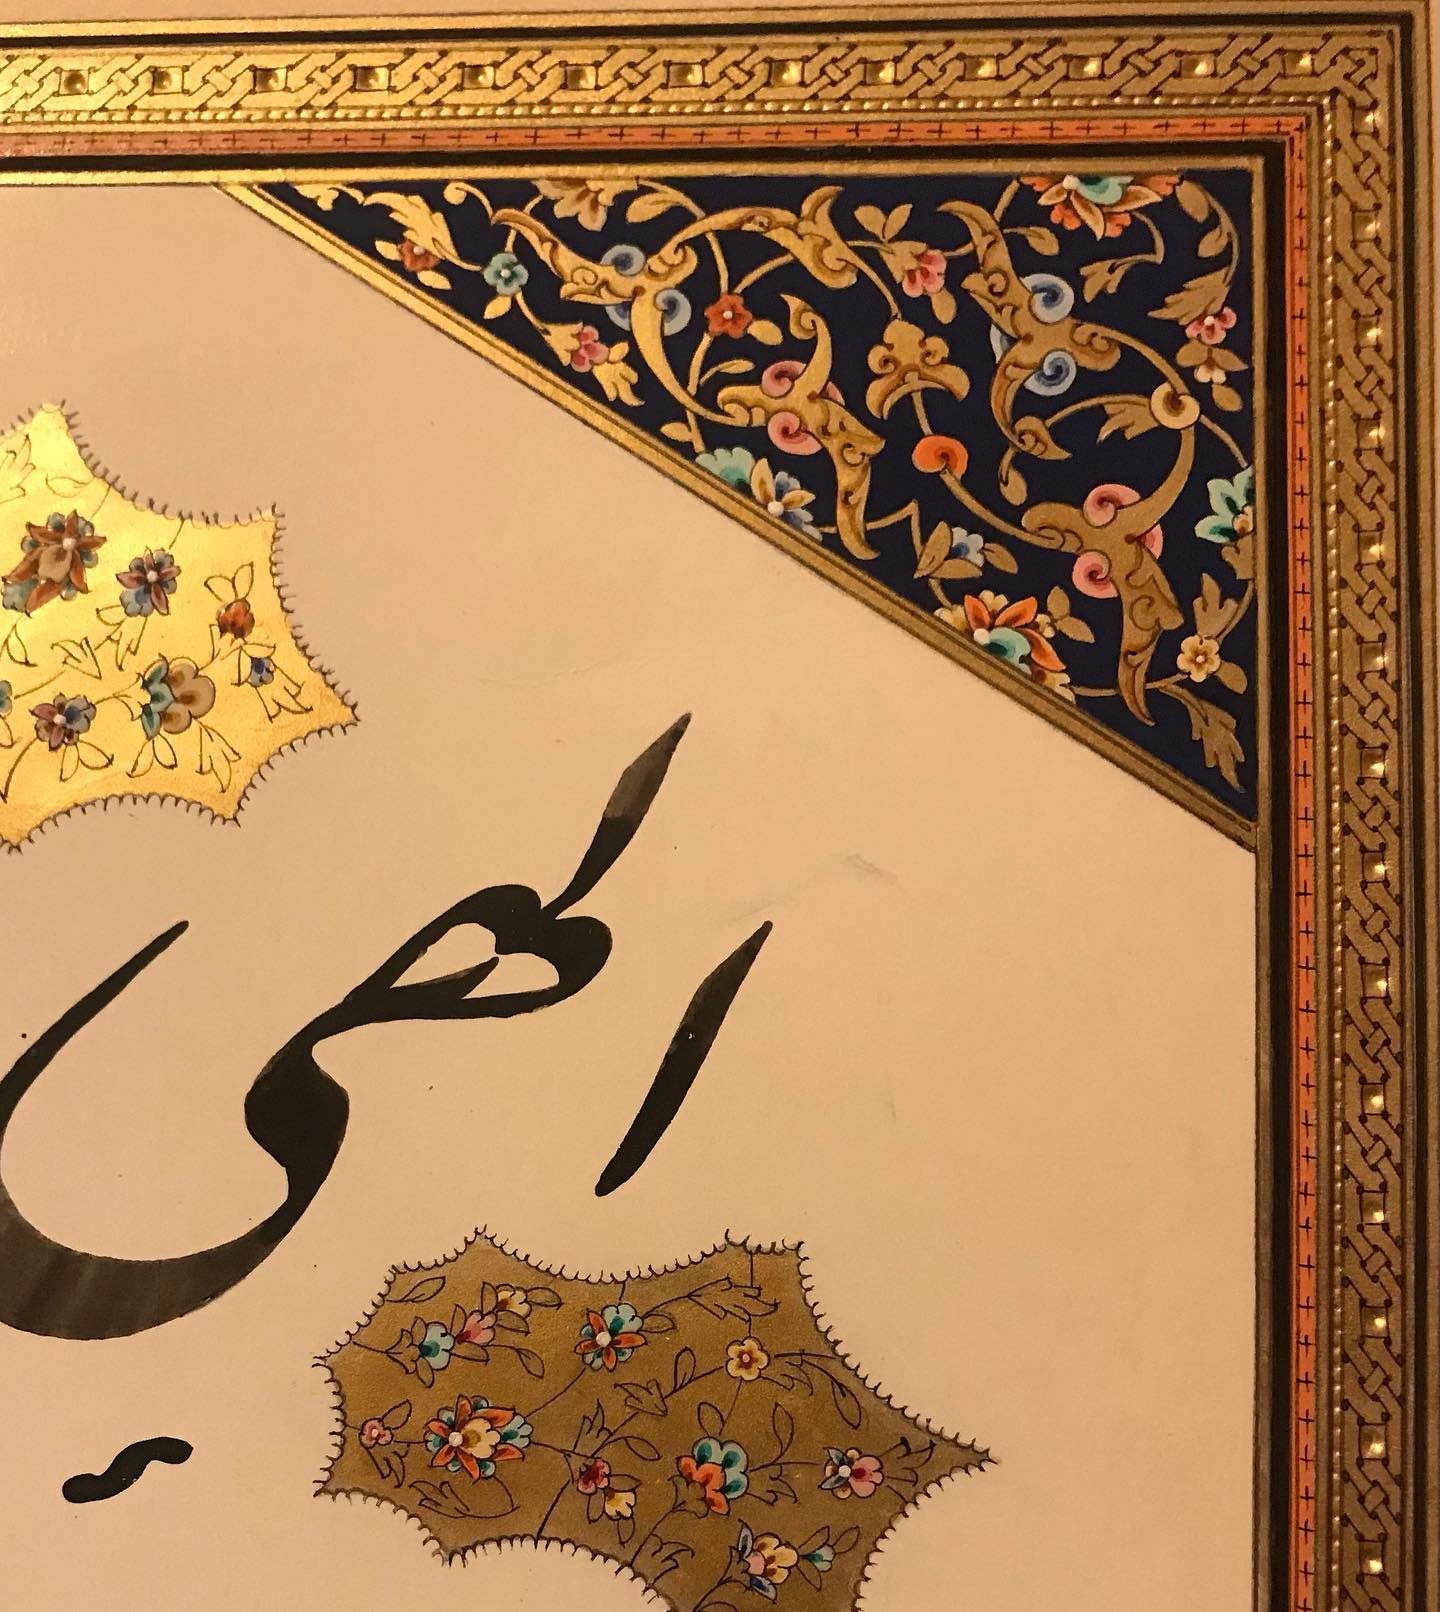 الهی